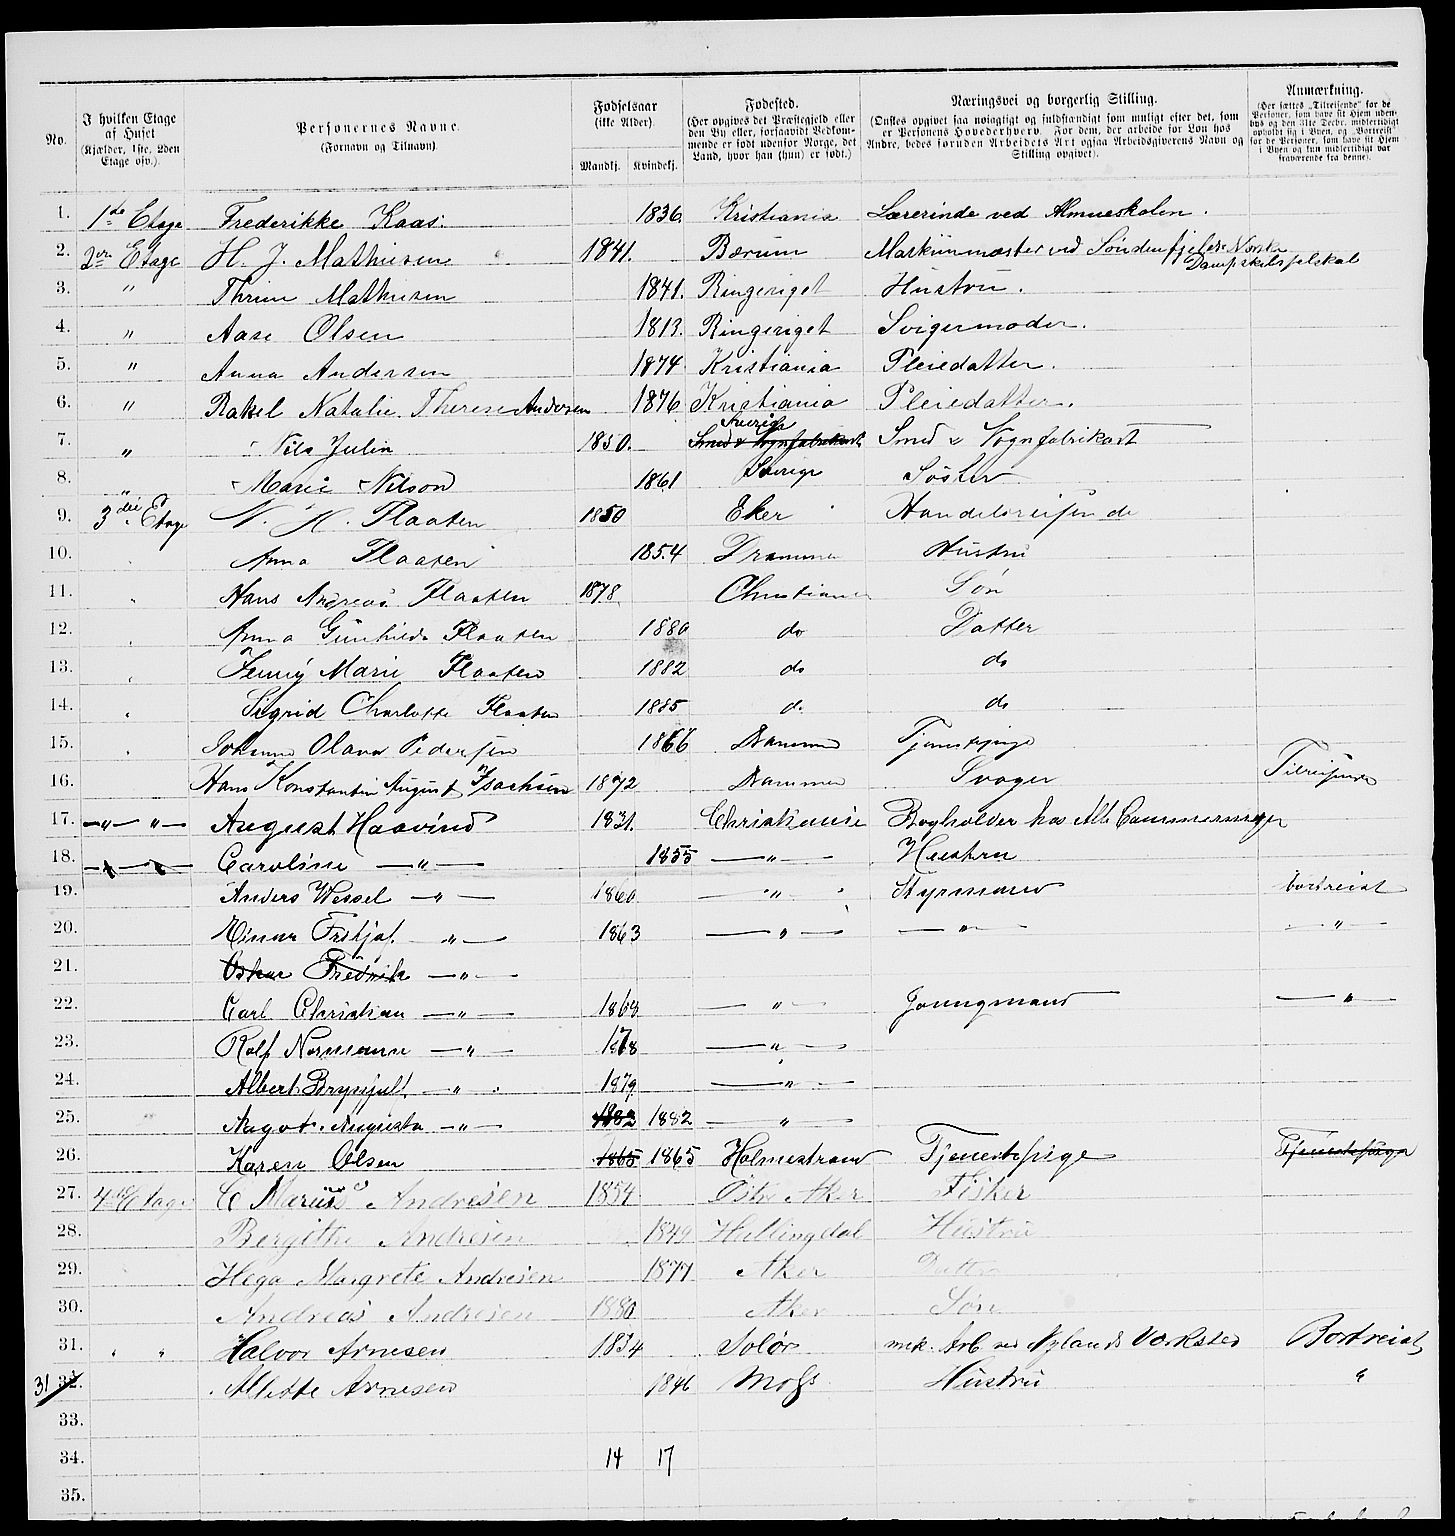 No. | I hvilken Etage af Huset (Kjælder, 1ste, 2den Etage osv.). | Personernes Navne. (Fornavn og Tilnavn) | Fødselsaar (ikke Alder). Mandkj. | Kvindekj. | Fødested. (Her opgives det Præstegjeld eller den By eller, forsaavidt Vedkommende er født udenfor Norge, det Land, hvor han (hun) er født.) | Næringsvei og borgerlig Stilling. (Ønskes opgivet saa nøiagtigt og fuldstændigt som muligt efter det, som er Personens Hovederhverv. For dem, der arbeide for Løn hos Andre, bedes foruden Arbeidets Art ogsaa Arbeidsgiverens Navn og Stilling opgivet). | Anmærkning. (Her sættes „Tilreisende" for de Personer, som have sit Hjem udenbys og den 31te Decbr. midlertidigt opholdt sig i Byen, og „Bortreist" for de Personer, som have sit Hjem i Byen og kun midlertidigt var fraværende fra denne).
1. 1ste Etage Frederikke Kaas. 1836. Kristiania Lærerinde ved Almueskolen.
2. 2den Etage H. J. Mathiesen 1841. Bærum Maskinmester ved Søndenfjelske Norske Dampskibsselskab
3. " Mathiesen 1841. Ringeriget Hustru.
4. " Aase Olsen 1813. Ringeriget Svigermoder.
5. " Anna Andersen 1874. Kristiania Pleiedatter.
6. " Rakel Natalie Therese Andersen 1876 Kristiania Pleiedatter.
7. " Nils Julin 1850. Smed & Vognfabrikant Sverige Smed & Vognfabrikant
8. " Marie Nilson 1861 Sverige Søster
9. 3die Etage N. H. Flaaten 1850 Eker Handelsreisende
10. Anna Flaaten 1854 Drammen Hustru
11. Hans Andreas Flaaten 1878. Christiania Søn
12. Anna Gunhilde Flaaten 1880 do Datter
13. Jenny Marie Flaaten 1882 do do
14. Sigrid Charlotte Flaaten 1885 do do
15. Johanne Olava Pedersen 1866 Drammen Tjenestepige
16. Hans Konstantin August Isachsen 1872 Drammen Svoger Tilreisende
17. —"— "— August Haavind 1831. Christiania Bogholder hos
18. Caroline —"— 1855 —"— Hustru
19. Anders Wessel —"— 1860 —"— Styrmand bortreist
20. Einar Fritjof —"— 1863 —"— —"— —"—
21. Oskar Fredrik —"—
22. Carl Christian —"— 1868 —"— Joungmand —"—
23. Rolf Normann —"— 1878 —"—
24. Albert Brynjulf —"— 1879. —"—
25. Aagot Augusta —"— 1882 1882 —"—
26. Karen Olsen 1865 1865 Holmestrand Tjenestepige Tjenestepige
27. 4de Etage C Marius Andresen 1854 Aker Fisker
28. Bergithe Andresen 1849 Hallingdal Hustru
29. Helga Margrete Andresen 1877 Aker Datter
30. Andreas Andresen 1880 Aker Søn
31. " " Halvor Arnesen 1834 Solør mek. Arb. ved Nylands Værksted Bortreist
31 32. Alette Arnesen 1846 Moss Hustru "
33.
34. 14 17
35.